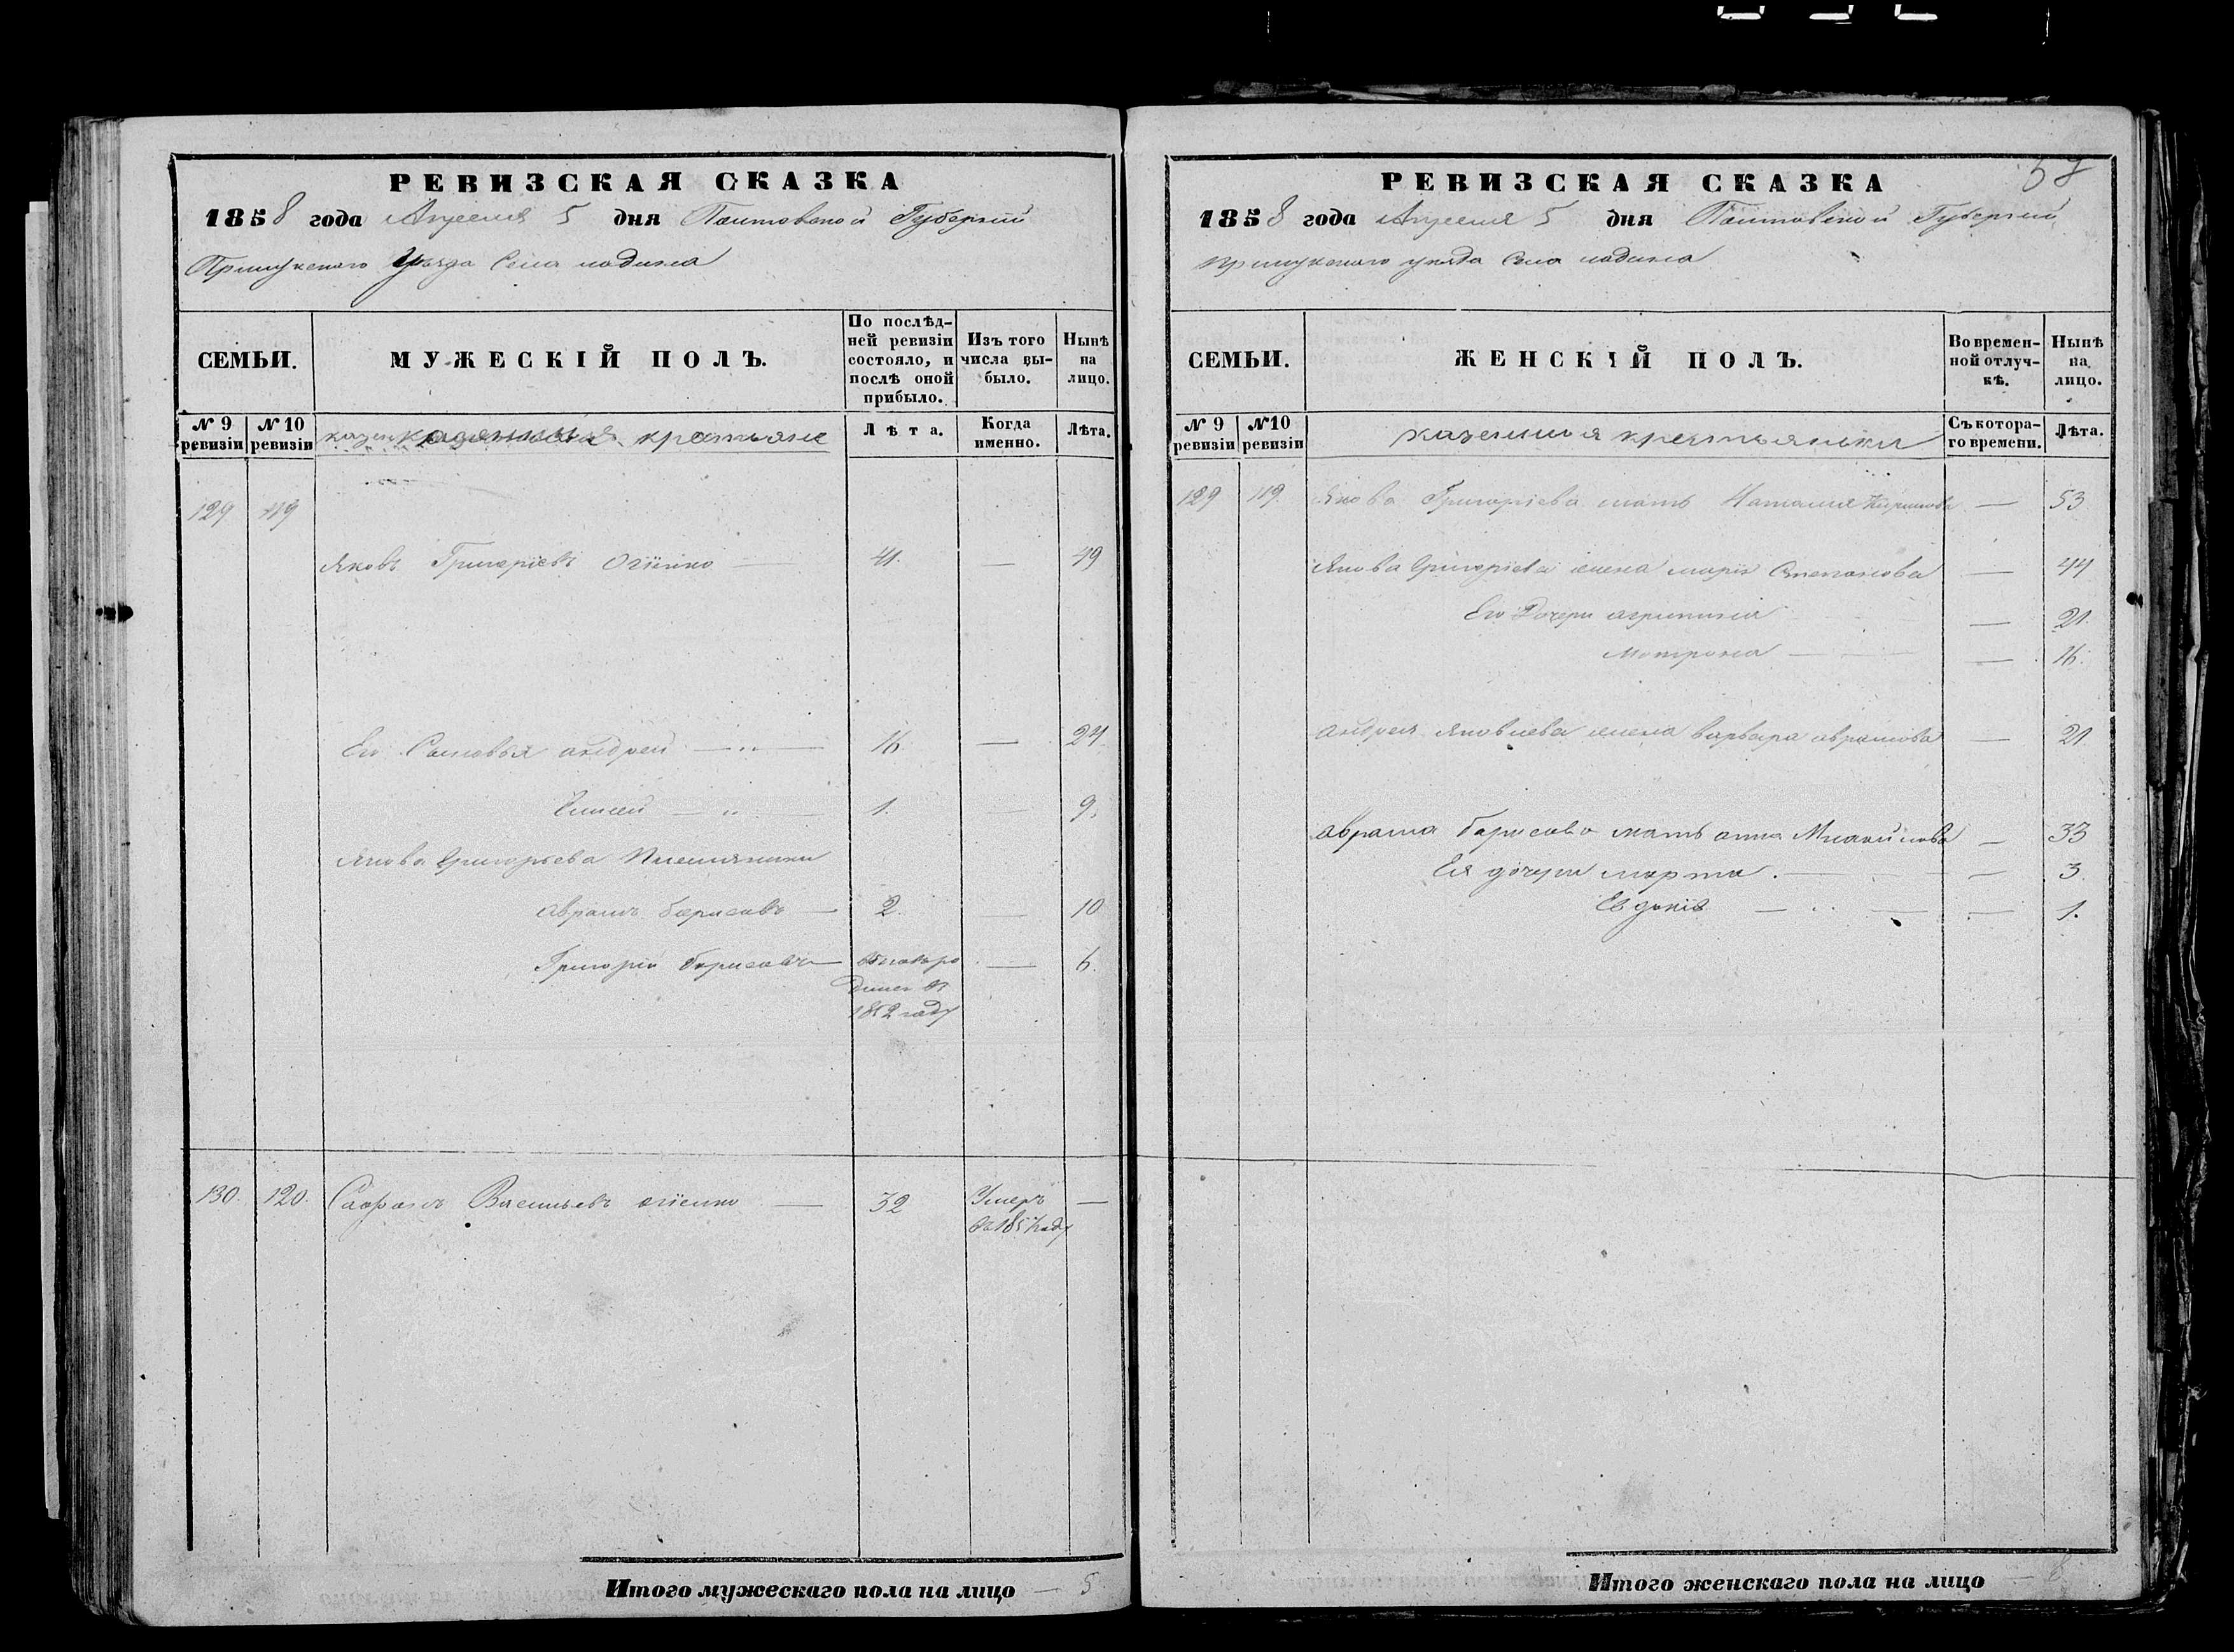 РЕВИЗСКАЯ СКАЗКА
1858 года Апреля 5 дня Полтавской Губернии
Прилукского Уезда Села Ладина
СЕМЬИ.
МУЖЕСКІЙ ПОЛЪ.
По послѣд-
ней ревизіи
состояло, и
послѣ оной
прибыло.
Изъ того
числа вы-
было.
Нынѣ
на
лицо.
№ 9 ревизіи
№ 10 ревизіи
крестьяне
Лѣта.
Когда именно.
Лѣта.
129 119
Яковъ Григоріевъ Огіенко — 41. — 49
Его Сыновья андрей — 16. — 24.
Елисей — 1. — 9.
Якова Григорьева Племянники
аврамъ борисовъ — 2. — 10
Григорій борисовъ — вновьро
дился въ
1852 году — 6.
130. 120. Сафонъ Васильевъ огіенко — 32 Умеръ —
въ 1857 году
Итого мужескаго пола на лицо — 5
58
РЕВИЗСКАЯ СКАЗКА
1858 года Апреля 5 дня Полтавской Губернии
Прилукского уезда Села ладина
СЕМЬИ.
ЖЕНСКІЙ ПОЛЪ.
Во времен-
ной отлуч-
кѣ.
Нынѣ
на
лицо.
№ 9 ревизіи
№ 10 ревизіи
казенныя крестьянки
Съ котора-
го времени.
Лѣта.
129 119. Якова Григоріева мать Наталия — 53
Якова Григоріева жена марія Степанова — 44
Его Дочери агрипина — 21.
Мотрона — 16.
андрея Яковлева жена варвара аврамова — 21.
аврама борисова мать анна Михайлова — 33
Ея дочери марта. — 3.
Евдокія — 1.
Итого женскаго пола на лицо — 8